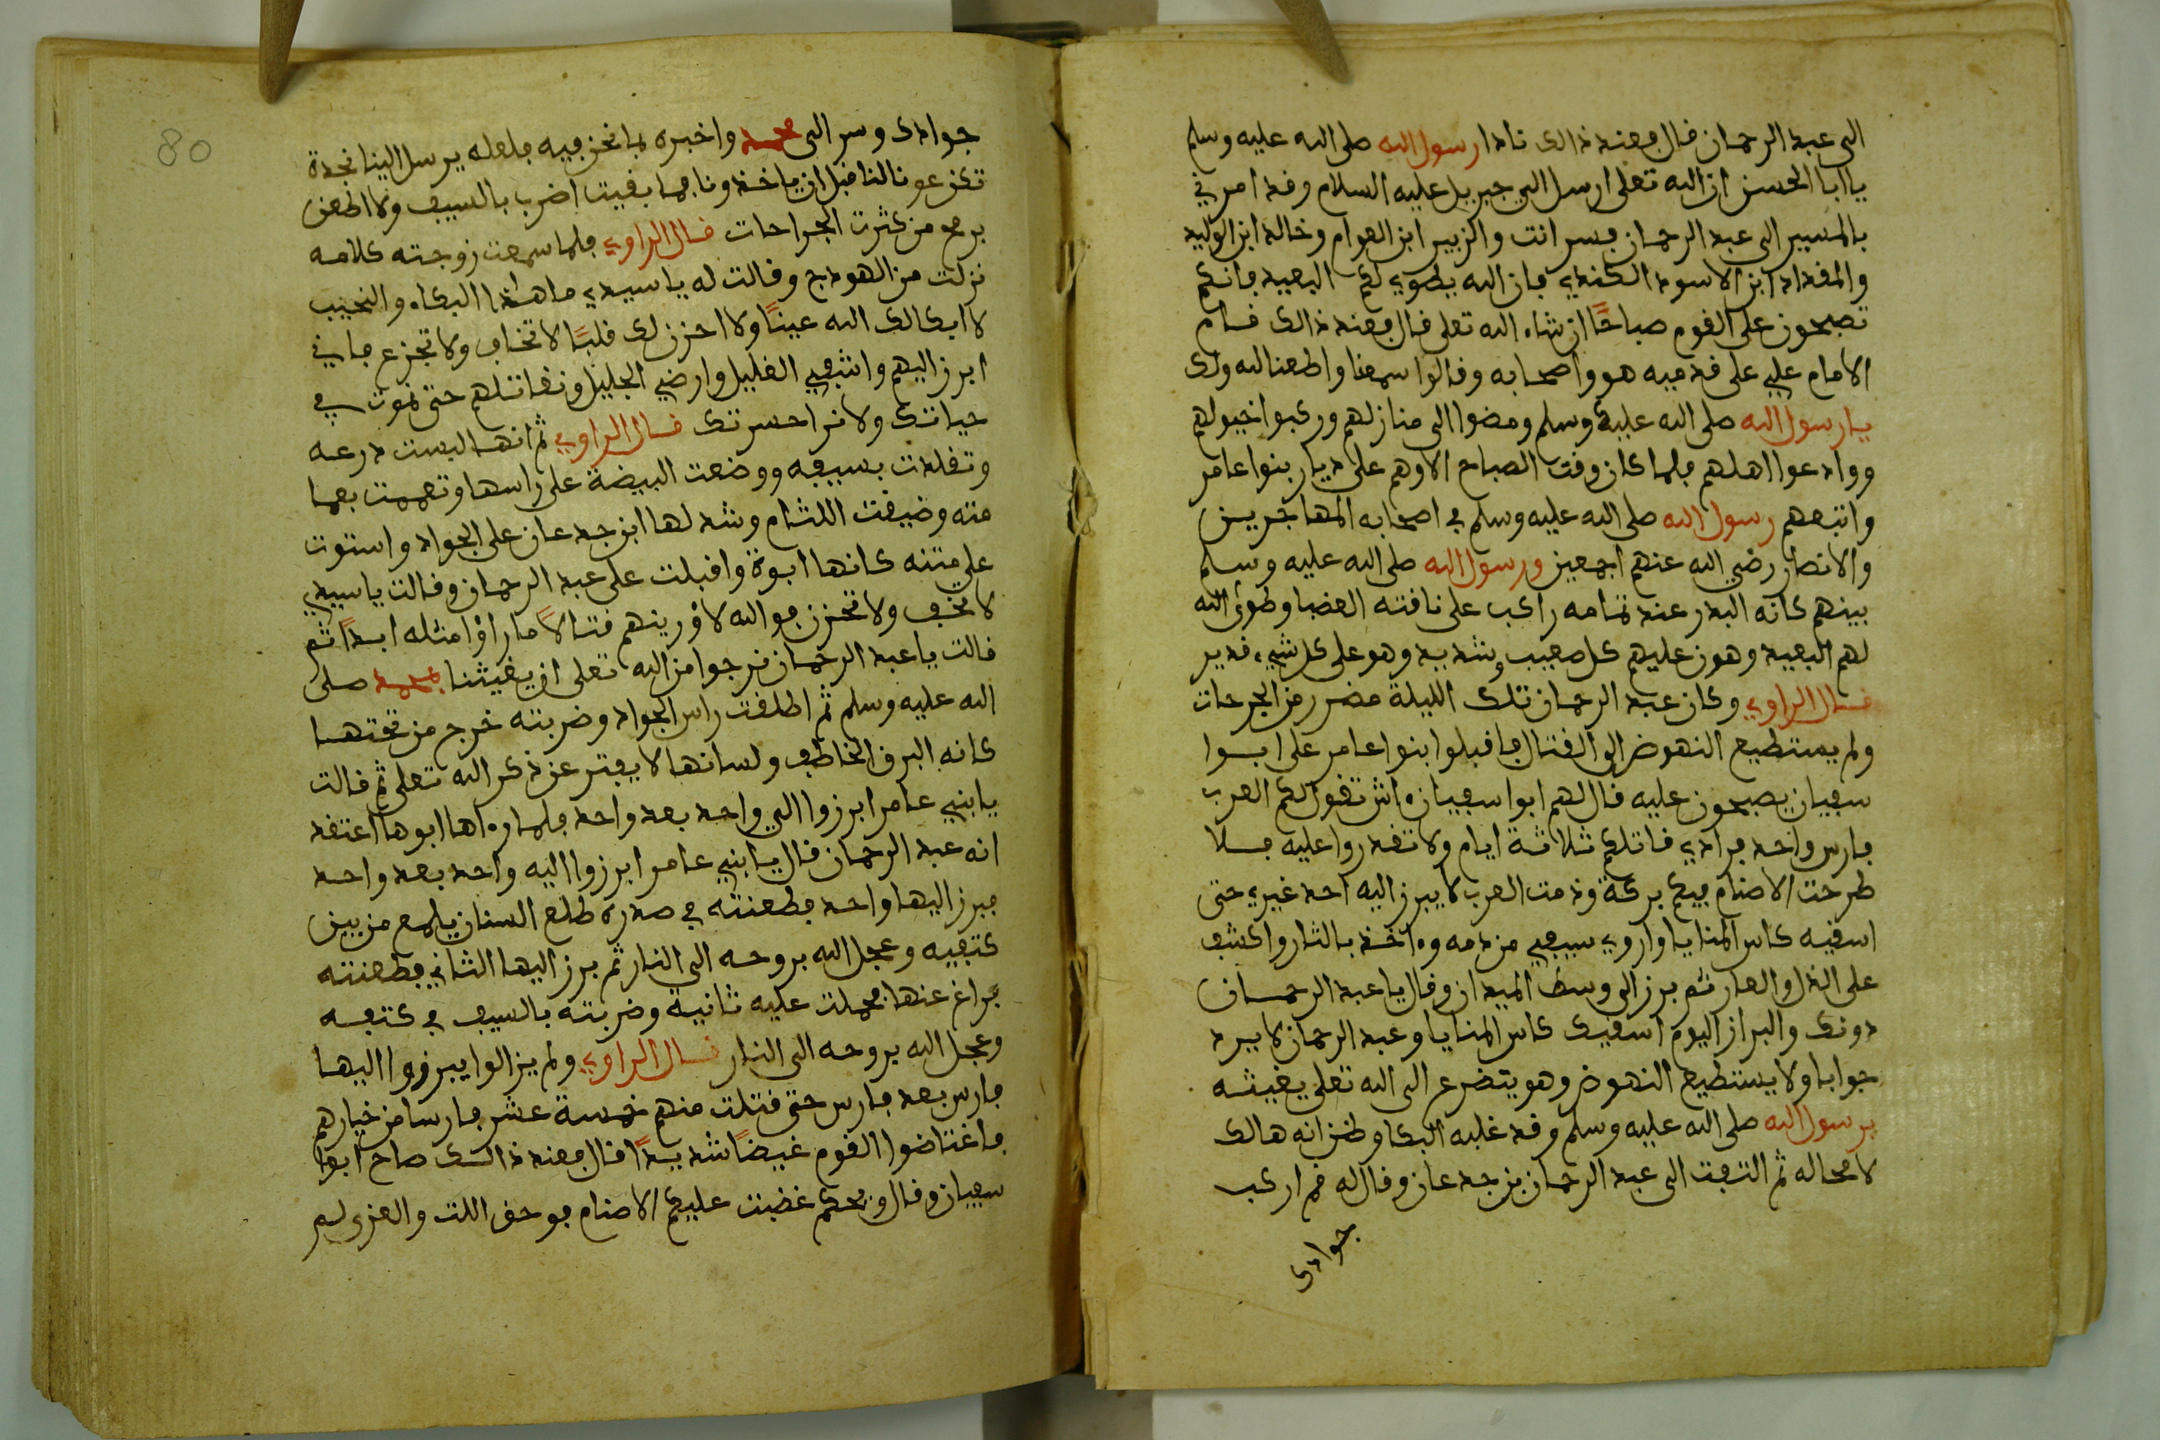 الى عبد الرحمان قال فعند ذالك نادا رسول الله صلى الله عليه وسلم
يا ابا الحسن ان الله تعلى ارسل الي جبريل عليه السلام وقد امرني
بالمسير الى عبد الرحمان فسر انت والزبير ابن العوام وخالد ابن الوليد
والمقداد ابن الاسود الكندي فان الله يطوي لكم البعيد فانكم
تصبحون على القوم صباحًا ان شاء الله تعلى قال فعند ذالك قام
الامام علي على قدميه هو واصحابه وقالوا سمعنا واطعنا لله ولك
يا رسول الله صلى الله عليه وسلم ومضوا الى منازلهم وركبوا خيولهم
ووادعوا اهلهم فلما كان وقت الصباح الا وهم على ديار بنوا عامر
واتبعهم رسول الله صلى الله عليه وسلم في اصحابه المهاجرين
والانصار رضي الله عنهم اجمعين ورسول الله صلى الله عليه وسلم
بينهم كانه البدر عند تمامه راكب على ناقته العضبا وطوى الله
لهم البعيد وهون عليهم كل صعيب وشديد وهو على كل شيء قدير
قال الراوي وكان عبد الرحمان تلك الليلة مضرر من الجرحات
ولم يستطيع النهوض الى القتال فاقبلوا بنوا عامر على ابوا
سفيان يصبحون عليه قال لهم ابوا سفيان ءاش تقول لكم العرب
فارس واحد فرادي قاتلكم ثلاثة ايام ولا تقدروا عليه فلا
طرحت الاصنام فيكم بركة وذمت العرب لا يبرز اليه احد غيري حتى
اسقيه كاس المنايا واروي سيفي من دمه وءاخذ بالثار واكشف
على الذل والعار ثم برز الى وسط الميدان وقال يا عبد الرحمان
دونك والبراز اليوم اسقيك كاس المنايا وعبد الرحمان لا يرد
جوابا ولا يستطيع النهوض وهو يتضرع الى الله تعلى يغيثه
برسول الله صلى الله عليه وسلم وقد غلبه البكا وظن انه هالك
لا محاله ثم التفت الى عبد الرحمان بن جدعان وقال له قم اركب
جوادك
80
جوادك وسر الى محمد واخبره بما نحن فيه فلعله يرسل الينا نجدة
تكن عونا لنا قبل ان ياخذونا فما بقيت اضرب بالسيف ولا اطعن
برمح من كثرت الجراحات قال الراوي فلما سمعت زوجته كلامه
نزلت من الهودج وقالت له يا سيدي ما هذا البكاء والنحيب
لا ابكا لك الله عينًا ولا احزن لك قلبًا لا تخاف ولا تجزع فاني
ابرز اليهم واشفي الغليل وارضي الجليل ونقاتلهم حتى نموت في
حياتك ولا نرا حسرتك قال الراوي ثم انها لبست درعه
وتقلدت بسيفه ووضعت البيضة على راسها وتعممت بعما
مته وضيقت اللثام وشد لها ابن جدعان على الجواد واستوت
على متنه كانها البوة واقبلت على عبد الرحمان وقالت يا سيدي
لا تخف ولا تحزن فو الله لاؤرينهم قتالاً ما راؤا مثله ابدًا ثم
قالت يا عبد الرحمان نرجوا من الله تعلى ان يغيثنا بمحمد صلى
الله عليه وسلم ثم اطلقت راس الجواد وضربته خرج من تحتها
كانه البرق الخاطف ولسانها لا يفتر عن ذكر الله تعلى ثم قالت
يا بني عامر ابرزوا الي واحد بعد واحد فلما رءاها ابوها اعتقد
انه عبد الرحمان قال يا بني عامر ابرزوا اليه واحد بعد واحد
فبرز اليها واحد فطعنته في صدره طلع السنان يلمع من بين
كتفيه وعجل الله بروحه الى النار ثم برز اليها الثاني فطعنته
فراغ عنها فحملت عليه ثانية وضربته بالسيف في كتفه
وعجل الله بروحه الى النار قال الراوي ولم يزالوا يبرزوا اليها
فارس بعد فارس حتى قتلت منهم خمسة عشر فارسا من خيارهم
فاغتاضوا القوم غيضًا شديدًا قال فعند ذالك صاح ابوا
سفيان وقال ويحكم غضبت عليكم الاصنام فوحق اللت والعزى لم